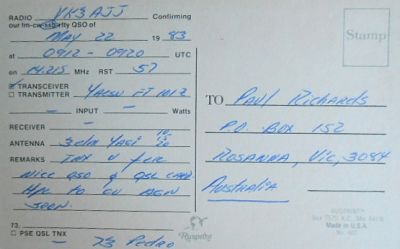 RADIO VK3AJJ Confirming
our QSO of
MAY 22 1983
at 0912 - 0920 UTC
on 14.215 MHz RST 57
TRANSCEIVER
TRANSMITTER YAESU FT 101Z
— INPUT — Watts
RECEIVER —
ANTENNA 3elm Yagi 10-15-20
REMARKS TNX U fer
NICE QSO & QSL CARD
HPE TO CU AGN
SOON.
73,
PSE QSL TNX
73 Pedro
Stamp
TO Paul Richards
P.O. BOX 152
ROSANNA, Vic, 3084
Australia
RUSPRINT
Made in U.S.A.
Rusprint